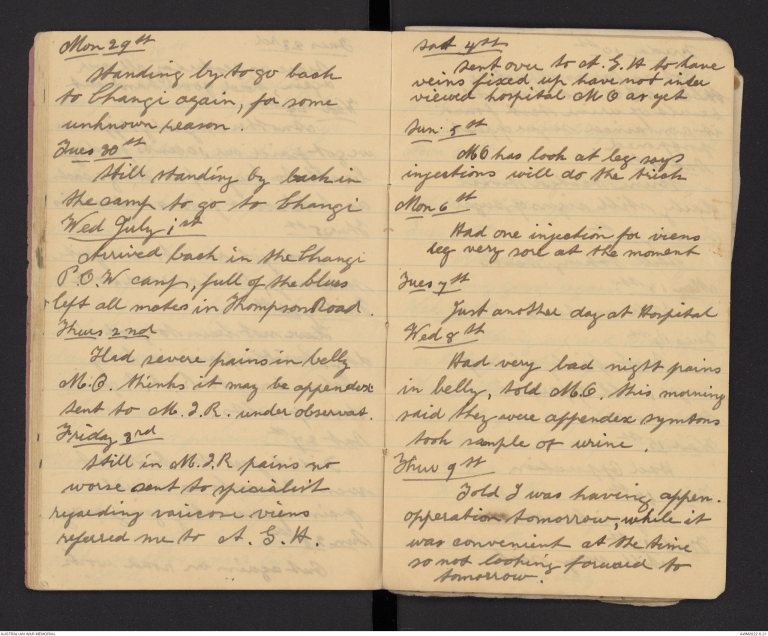 Mon 29st
Standing by to go back
to Changi again, for some
unknown reason.
Tues 30st
Still standing by back in
the camp to go to Changi
Wed July 1st
Arrived back in the Changi
P.O.W camp, full of the blues
left all mates in Thompson Road.
Thurs 2nd
Had severe pains in belly
M.O. thinks it may be appendex
sent to M.I.R. under observat.
Friday 3rd
Still in M.I.R pains no
worse sent to spicialist
regarding varicose viens
referred me to A.G.H.
Sat 4st
Sent over to A.G.H to have
veins fixed up have not inter
viewed hospital MO as yet
Sun. 5st
MO has look at leg says
injections will do the trick
Mon 6st
Had one injection for viens
leg very sore at the moment
Tues 7st
Just another day at Hospital
Wed 8st
Had very bad night pains
in belly, told M.O. this morning
said they were appendex symtons
took sample of urine.
Thur 9st
Told I was having appen.
opperation tomorrow, while it
was convenient at the time
so not looking forward to
tomorrow.
AUSTRALIAN WAR MEMORIAL